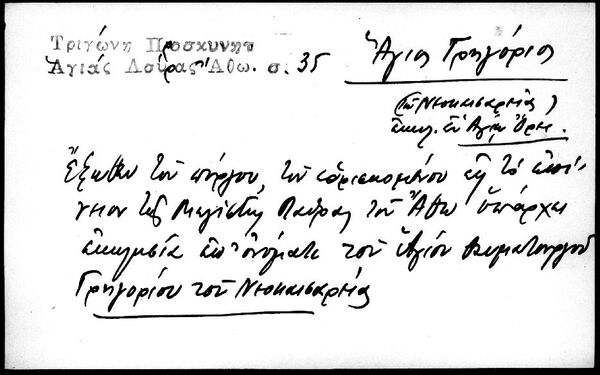 Τριγώνη Προσκυνητ
Ἁγιάς Λαύρας Ἄθω. σ. 35
Ἅγιος Γρηγόριος
(τῶ Νεοκαισαρείας)
ἐκκλ. ἐν Ἁγίῳ Ὄρει.
Ἔξωθεν τοῦ πύργου, τοῦ εὑρισκομένου εἰς τὸ ἐπί-
νειον τῆς Μεγίστης Λαύρας τοῦ Ἄθω ὑπάρχει
ἐκκλησία ἐπ' ὀνόματι τοῦ Ἁγίου Θαυματουργοῦ
Γρηγορίου τοῦ Νεοκαισαρείας